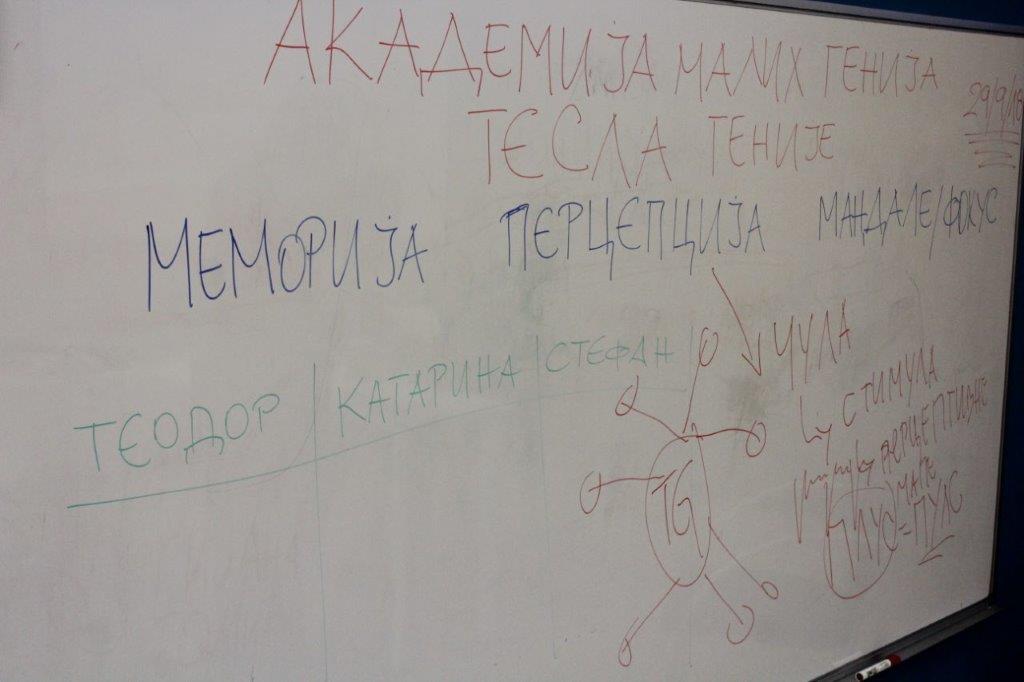 АКАДЕМИЈА МАЛИХ ГЕНИЈА
29/9/18
ТЕСЛА ГЕНИЈЕ
МЕМОРИЈА ПЕРЦЕПЦИЈА МАНДАЛЕ/ФОКУС
ТЕОДОР КАТАРИНА СТЕФАН
ЧУЛА
СТИМУЛА
ПЕРЦЕПТИВНЕ
МАПЕ
ПЛУС=ПУЛС
TG